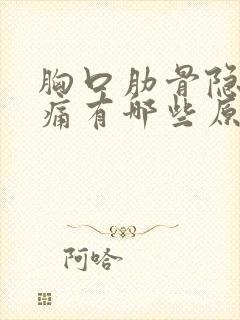 胸口肋骨隐
痛有哪些原
阿哈